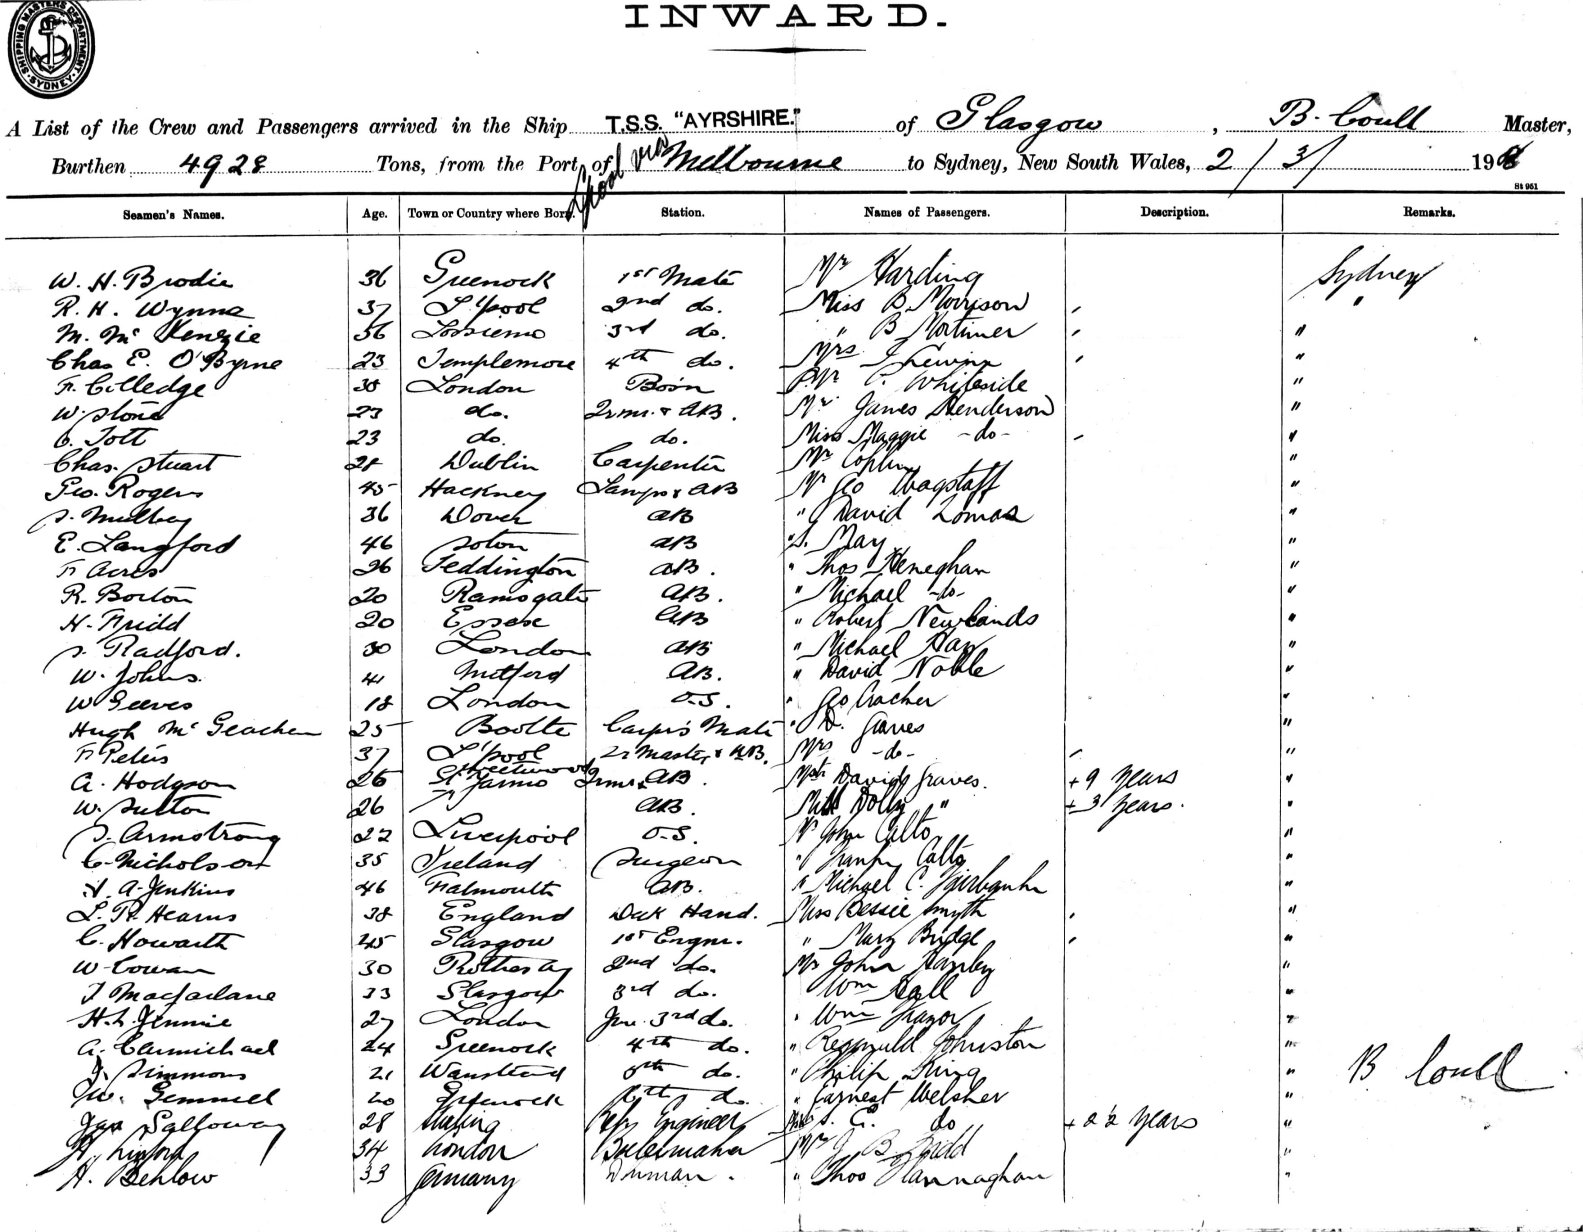 SHIPPING MASTERS DEPARTMENT. SYDNEY.
INWARD.
A List of the Crew and Passengers arrived in the Ship T.S.S. "AYRSHIRE." of Glasgow, B. Coull Master,
Burthen 4928 Tons, from the Port of L'pool via Melbourne to Sydney, New South Wales, 2/3/ 190
St 951
Seamen's Names. Age. Town or Country where Born. Station. Names of Passengers. Description. Remarks.
W. H. Brodie 36 Greenock 1st Mate Mr Harding Sydney
R. H. Wynne 37 L'pool 2nd do. Miss B. Morrison , "
M. McKenzie 36 Lossiemo 3rd do. " B Mortimer , "
Chas E. O'Byrne 23 Templemore 4th do. Mrs , "
F. Colledge 38 London Bosn Mr Whiteside "
W. Stone 23 do. & AB. Mr James Henderson "
Tott 23 do. do. Miss Maggie -do- , "
Chas. Stuart 28 Dublin Carpenter Mr "
Geo. Rogers 45 Hackney Lamps & AB Mr Geo Wagstaff "
36 Dover AB " David Lomas "
E. Langford 46 Soton AB May "
F. Acres 26 Teddington AB. " Thos Heneghan "
R. Borton 20 Ramsgate AB. " Michael -do- "
H. Fridd 20 Essex AB " Robert Newlands "
S. Radford. 30 London AB " Michael "
W. Johns. 41 Mitford AB. " David Noble "
W Geeves 18 London O.S. " Geo Cracher "
Hugh McGeachen 25 Bootle Carp's Mate " D. Graves "
F Peters 37 L'pool Master & AB. Mrs -do- , "
A. Hodgson 26 Fleetwood & AB. David Graves. + 9 Years "
W. Sutton 26 AB. Miss Dolly " + 3 Years. "
S. Armstrong 22 Liverpool O.S. Mr John Calto "
C. Nicholson 35 Ireland Surgeon " Calto "
A. Jenkins 46 Falmouth AB. " Michael C. Fairbanks "
L. R. Hearns 38 England Deck Hand. Miss Bessie Smyth , "
C. Howarth 45 Glasgow 1st Engnr. " Mary Bridge , "
W Cowan 30 Rothesay 2nd do. Mr John Hanley "
J Macfarlane 33 Glasgow 3rd do. Wm Hall "
H. L. Jinnie 27 London Jnr. 3rd do. " Wm "
A. Carmichael 24 Greenock 4th do. " Reginald Johnston "
J. Simmons 21 Wanstead 5th do. " Philip King " B Coull
Geo. Gemmel 20 Greenock 6th do. " Earnest Welsher "
Jas Galloway 28 Stirling Refr Engineer do + 2½ Years "
H. Linford 34 London Boilermaker Mr J B "
H. Behlow 33 Germany D'nman. " Thos Hannaghan "